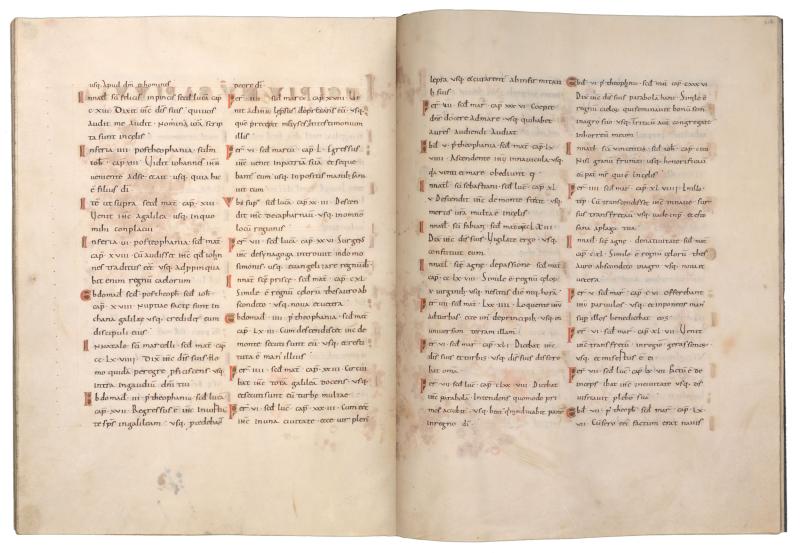 usq; apud dm & homines
In nat sci felicis in pincis secd luca cap
c xiic Dixit ihc dis suis qui uos
audit me audit Nomina ura scrip
ta sunt in celis
In feria iiii post theophania sedm
ioh cap xiii Vidit iohannes ihm
uenientē ad se & ait usq; quia hic
ē filius di
Ite ut supra secd mat cap xiii
Venit ihc a galilea usq; in quo
mihi conplacui
In feria vi post theophania secd mat
cap xviii Cū audisset ihc qd ioħn
nes traditus eēt usq; adppinqua
bit enim regnū caelorum
Ebdomad secd post theoph secd ioh
cap xviii nuptiae factę sunt in
chana galileę usq; crediderunt eum
discipuli eius
In natale sci marcelli secd mat cap
cc lx viiii Dix ihc dis suis Ho
mo quidā peregre pficiscens usq;
intra in gaudiū dni tui
Ebdomad iii p theophania secd luca
cap xvii Regressus ē ihc in uirtu
te sps in galileam usq; procedebant
de ore di
Fer iiii secd marc cap xviii Ve
nit ad ihm leprosus depraecans eū usq;
que precepit moyses in testimonium
illis
Fer vi secd mat cap l Egressus
ihc uenit in patriā suā et seque
bant eum usq; inpositis manib; sana
uit eum
Ubi sup secd luca cap xx iii Descen
dit ihc de capharnaū usq; in omnē
locū regionis
Fer vii secd luca cap xx vi Surgens
ihc de synagoga introiuit in domō
simonis usq; euangelizare regnū di
In nat scę priscę secd mat cap cxl
Simile ē regnū celorū thesauro ab
scondito usq; noua et uetera
Ebdomad iiii p theophania secd mat
cap lx iii Cum descendisset ihc de
monte secutę sunt eū usq; et resti
tuta ē manꝰ illius
Fer iiii secd mat cap xx iii Circui
bat ihc totā galileā docens usq;
et secutę sunt eū turbę multae
Fer vi secd luc cap xxx iii Cum eēt
ihc in una ciuitate ecce uir plenꝰ
lepra usq; et curarent ab infirmitatib
suis
Fer vii secd mar cap xxx vi Coepit
ihc docere ad mare usq; qui habet
aures audiendi audiat
Ebd v p theophania secd mat cap lx
viiii Ascendente ihu in nauicula usq;
qa uenti & mare obediunt ei
In nat sci sebastiani secd luc cap xl
v Descendit ihc de monte stetit usq;
merces ura multa ē in celis
In nat sci fabiani secd mat cap cclx iii
Dix ihc dis suis Vigilate ergo usq;
constituet eum
In nat scę agnę de passione secd mat
cap cc lx viii Simile ē regnū cęlorū
x uirginib; usq; nescitis diē neq; horā
Fer iiii secd mat cap lxx iiii Loquente ihu
ad turbas ecce un de principib; usq; in
uniuersam terram illam
Fer vi secd mar cap xl i Dicebat ihc
dis suis et turbis usq; dis suis dissere
bat omā
Fer vii secd luc cap clxx viii Dicebat
ihc parabolā Intendens quomodo pri
mos accubit usq; beatꝰ qui manducabit panē
in regno di
Ebd vi p theophan secd mat cap cxxx vi
Dix ihc dis suis parabolā hanc Simile ē
regnū caelorū qui seminauit bonū sem
in agro suo usq; Triticū aute congregate
in horreū meum
In nat sci uincentii secd ioh cap cviii
Nisi granū frumti usq; honorificauit
eū pat ms qui ē in celis
Fer iiii secd mar cap xl viiii In illo
tēp Cū transcendisset ihc in naue rur
sus trans fretū usq; uade in pace et esto
sana a plaga tua
In nat scę agnę de natiuitate secd mat
cap cxl Simile ē regnū celorū thes
auro abscondito in agro usq; noua et
uetera
Fer v secd mar cap c vi Offerebant
ihu paruulos usq; et inponens man
sup illos benedicebat eos
Fer vi secd mar cap xl vii Venit
ihc trans fretū in regionē gerasenorū
usq; et misertus ē ei
Fer vii secd luc cap lx vii Factū ē de
inceps ibat ihc in ciuitate usq; ds
uisitauit plebē suā
Ebd vii p theoph secd mar cap lx
vii Cū sero eēt factum erat nauis